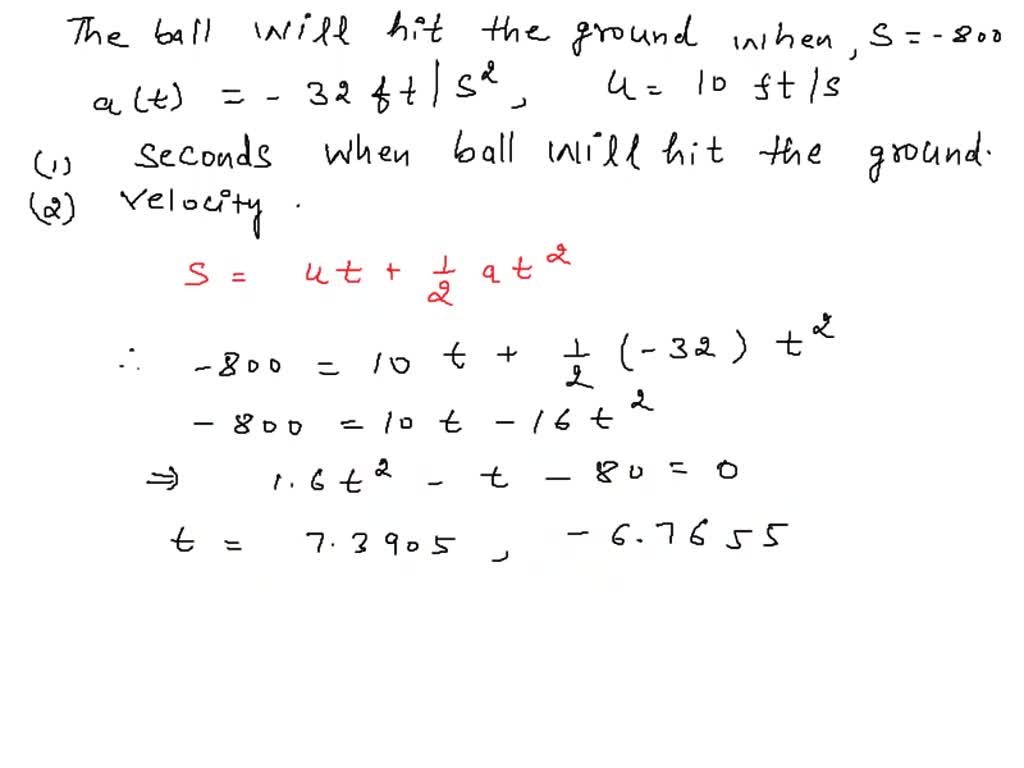 The ball will hit the ground when, S = - 800
a(t) = - 32 ft/s², u = 10 ft/s
(1) seconds when ball will hit the ground.
(2) velocity.
S = ut + 1/2 at²
∴ -800 = 10 t + 1/2 (-32) t²
- 800 = 10 t - 16 t²
⇒ 1.6 t² - t - 80 = 0
t = 7.3905, - 6.7655